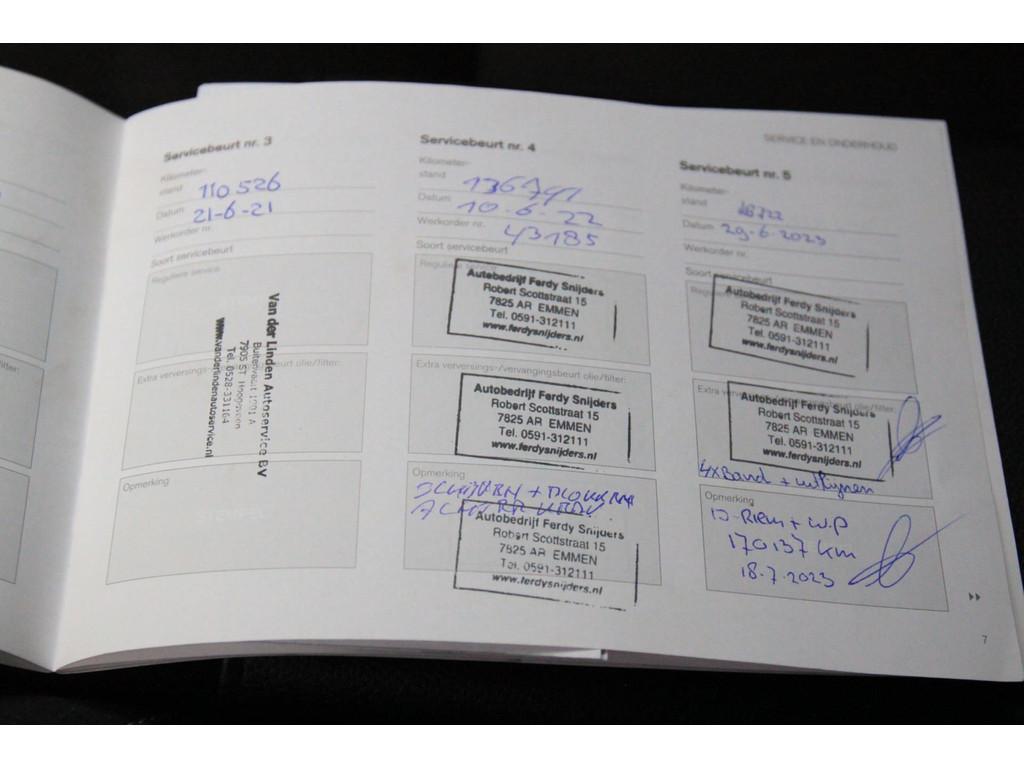 SERVICE EN ONDERHOUD
Servicebeurt nr. 3
Kilometer-
stand 110526
Datum 21-6-21
Werkorder nr.
Soort servicebeurt
Reguliere service
Van der Linden Autoservice BV
Buitenvaart 1001 A
7905 ST Hoogeveen
Tel. 0528-331164
www.vanderlindenautoservice.nl
Extra verversings- olie/filter:
Opmerking
Servicebeurt nr. 4
Kilometer-
stand
Datum 10-6-22
Werkorder nr. 43185
Soort servicebeurt
Autobedrijf Ferdy Snijders
Robert Scottstraat 15
7825 AR EMMEN
Tel. 0591-312111
www.ferdysnijders.nl
Extra verversings-/vervangingsbeurt olie/filter:
Autobedrijf Ferdy Snijders
Robert Scottstraat 15
7825 AR EMMEN
Tel. 0591-312111
www.ferdysnijders.nl
Opmerking
SCHIJVEN + BLOKKEN
Autobedrijf Ferdy Snijders
Robert Scottstraat 15
7825 AR EMMEN
Tel. 0591-312111
www.ferdysnijders.nl
Servicebeurt nr. 5
Kilometer-
stand
Datum 29-6-2023
Werkorder nr.
Soort servicebeurt
Autobedrijf Ferdy Snijders
Robert Scottstraat 15
7825 AR EMMEN
Tel. 0591-312111
www.ferdysnijders.nl
Extra olie/filter:
Autobedrijf Ferdy Snijders
Robert Scottstraat 15
7825 AR EMMEN
Tel. 0591-312111
www.ferdysnijders.nl
4x Band + uitlijnen
Opmerking
D-Riem + W.P
170137 km
18-7-2023
7